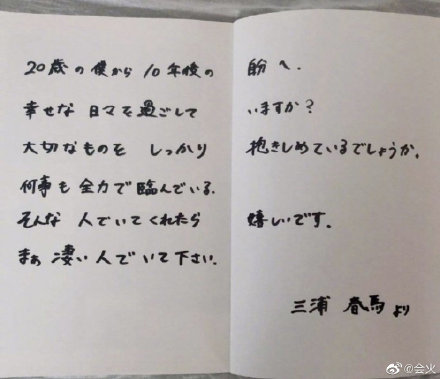 20歳の僕から10年後の 自分へ.
幸せな日々を過ごして いますか?
大切なものを しっかり 抱きしめているでしょうか.
何事も全力で臨んでいる.
そんな人でいてくれたら 嬉しいです.
まぁ凄い人でいて下さい.
三浦 春馬 より
@会火